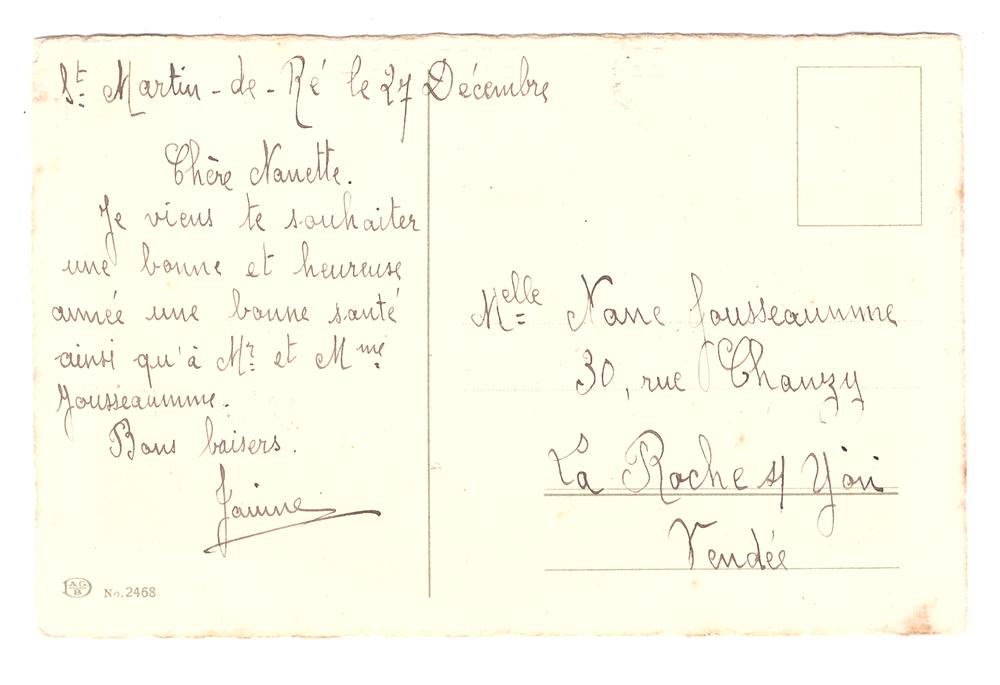 St Martin-de-Ré le 27 Décembre
Chère Nanette.
Je viens te souhaiter
une bonne et heureuse
année une bonne santé
ainsi qu'à Mr et Mme
Jousseaumme.
Bons baisers.
Janine
Melle Nane Jousseaumme
30, rue Chanzy
La Roche s/ Yon
Vendée
AG B No. 2468